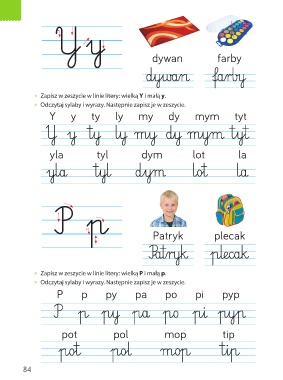 Y y
dywan farby
dywan farby
Zapisz w zeszycie w linie litery: wielką Y i małą y.
Odczytaj sylaby i wyrazy. Następnie zapisz je w zeszycie.
Y y ty ly my dy mym tyt
Y y ty ly my dy mym tyt
yla tyl dym lot la
yla tyl dym lot la
P p
Patryk plecak
Patryk plecak
Zapisz w zeszycie w linie litery: wielką P i małą p.
Odczytaj sylaby i wyrazy. Następnie zapisz je w zeszycie.
P p py pa po pi pyp
P p py pa po pi pyp
pot pol mop tip
pot pol mop tip
84